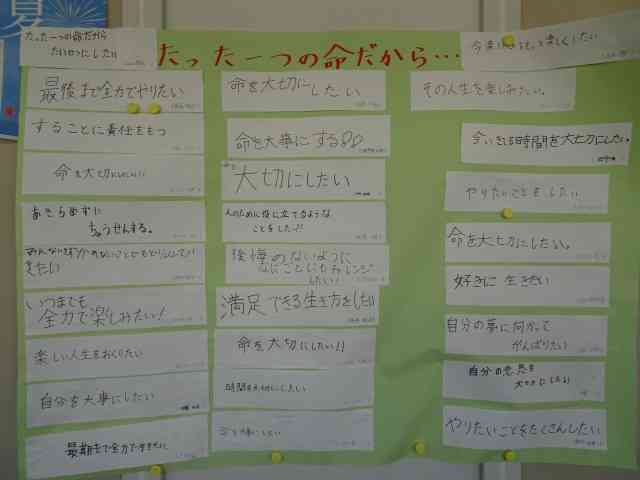 夏
たった一つの命だから…
たった一つの命だから
たいせつにしたい
最後まで全力でやりたい
することに責任をもつ
命を大切にしたい
あきらめずに
ちょうせんする。
いつまでも
全力で楽しみたい!
楽しい人生をおくりたい
自分を大事にしたい
最期まで全力で生きたい
命を大切に
したい
命を大事にする
大切にしたい
人のために役に立てるような
ことをしたい!!
後悔のないように
なにごとにもチャレンジ
したい!
満足できる生き方をしたい
命を大切にしたい!!
時間を大切にしたい
楽しくしたい
その人生を楽しみたい。
今いきる時間を大切にしたい。
やりたいことをしたい
命を大切にしたい。
好きに生きたい
自分の夢に向かって
がんばりたい
自分の意思を
大切にしたい
やりたいことをたくさんしたい